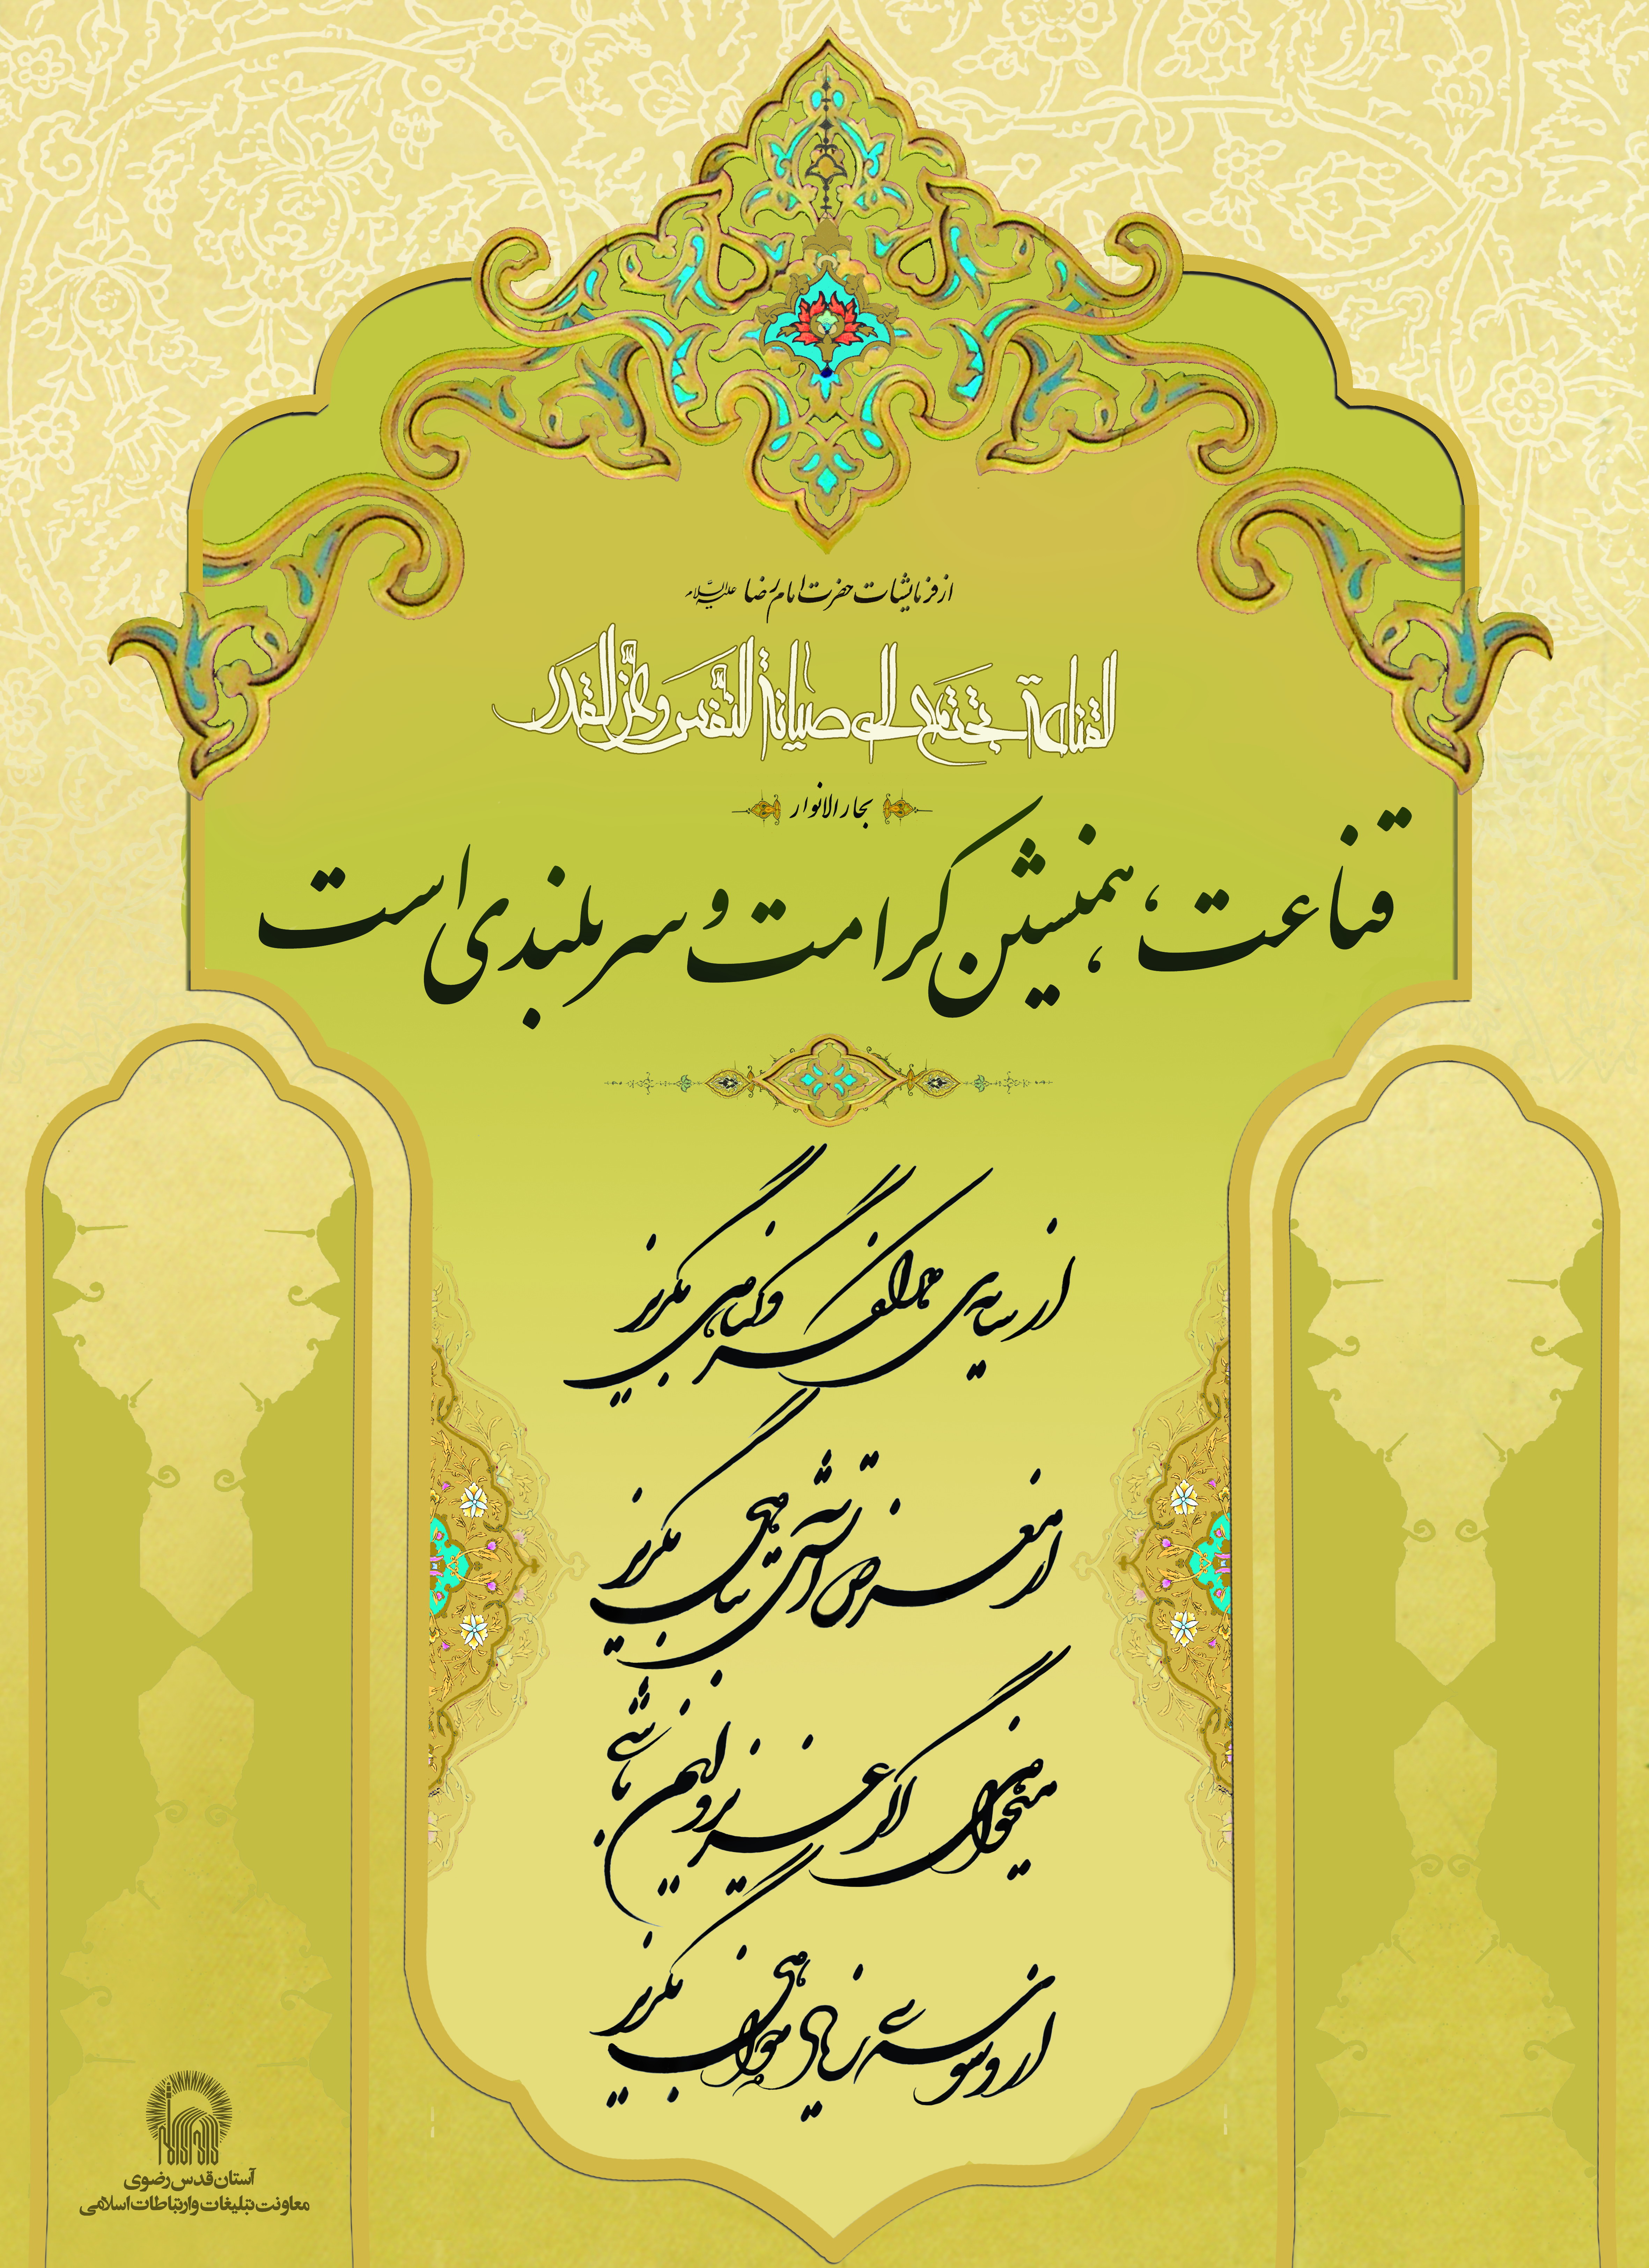 از فرمایشات حضرت امام رضا علیه السلام
القناعة تجتمع الی صیانة النّفس و عزّ القدر
بحار الانوار
قناعت، همنشین کرامت و سربلندی است
از سایه‌ی هر گناهی بگریز
از معرض آتش تباهی بگریز
میخواهی اگر عزیزترین باشی
از وسوسه‌ی زیاده خواهی بگریز
آستان قدس رضوی
معاونت تبلیغات و ارتباطات اسلامی